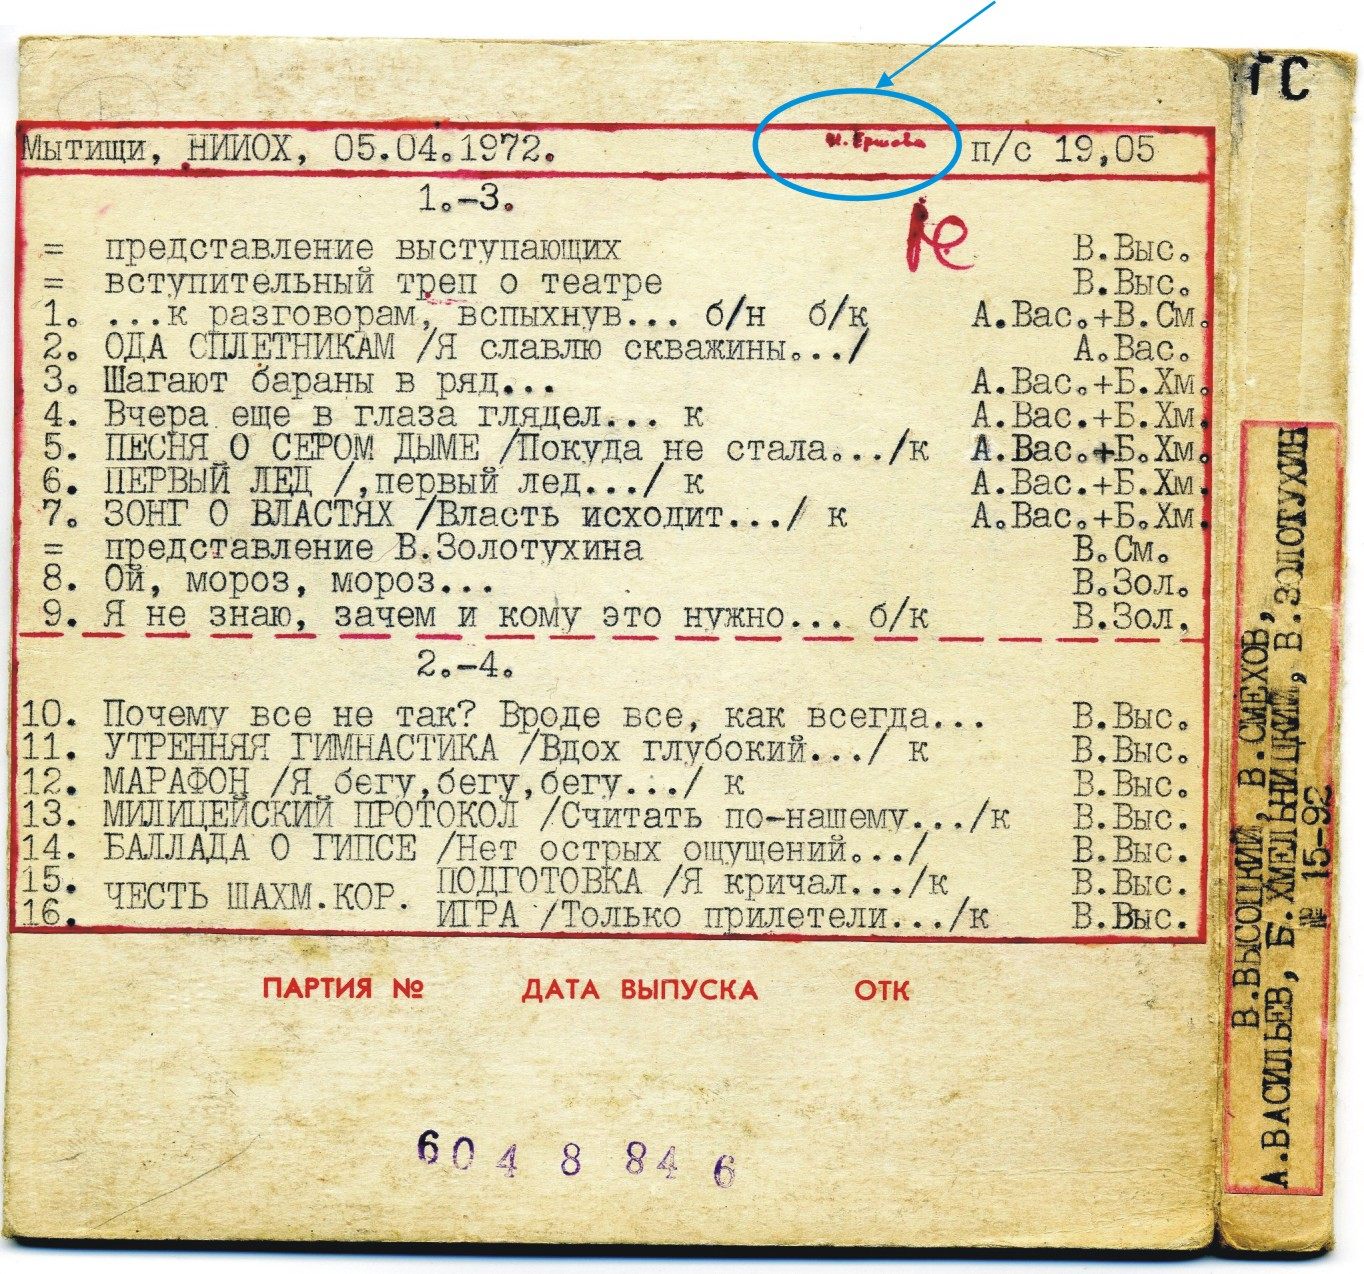 Мытищи, НИИОХ, 05.04.1972. н. Ершова п/с 19,05
1.-3.
= представление выступающих В.Выс.
= вступительный треп о театре В.Выс.
1. ...к разговорам, вспыхнув... б/н б/к А.Вас.+В.См.
2. ОДА СПЛЕТНИКАМ /Я славлю скважины.../ А.Вас.
3. Шагают бараны в ряд... А.Вас.+Б.Хм.
4. Вчера еще в глаза глядел... к А.Вас.+Б.Хм.
5. ПЕСНЯ О СЕРОМ ДЫМЕ /Покуда не стала.../к А.Вас.+Б.Хм.
6. ПЕРВЫЙ ЛЕД /,первый лед.../ к А.Вас.+Б.Хм.
7. ЗОНГ О ВЛАСТЯХ /Власть исходит.../ к А.Вас.+Б.Хм.
= представление В.Золотухина В.См.
8. Ой, мороз, мороз... В.Зол.
9. Я не знаю, зачем и кому это нужно... б/к В.Зол.
2.-4.
10. Почему все не так? Вроде все, как всегда... В.Выс.
11. УТРЕННЯЯ ГИМНАСТИКА /Вдох глубокий.../ к В.Выс.
12. МАРАФОН /Я бегу,бегу,бегу.../ к В.Выс.
13. МИЛИЦЕЙСКИЙ ПРОТОКОЛ /Считать по-нашему.../к В.Выс.
14. БАЛЛАДА О ГИПСЕ /Нет острых ощущений.../ В.Выс.
15. ЧЕСТЬ ШАХМ.КОР. ПОДГОТОВКА /Я кричал.../к В.Выс.
16. ИГРА /Только прилетели.../к В.Выс.
ПАРТИЯ № ДАТА ВЫПУСКА ОТК
604 8 84 6
ГС
В.ВЫСОЦКИЙ, В.СМЕХОВ,
А.ВАСИЛЬЕВ, Б.ХМЕЛЬНИЦКИЙ, В.ЗОЛОТУХИН
№ 15-92